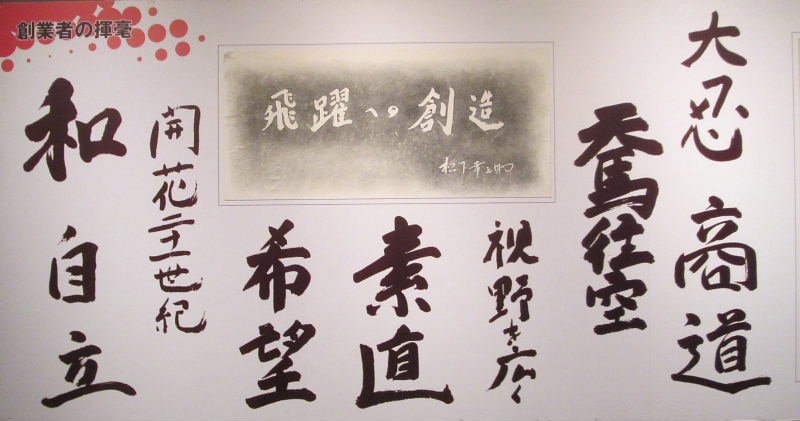 創業者の揮毫
大忍
商道
天馬往空
飛躍への創造
松下幸之助
視野を広く
素直
希望
開花二十一世紀
和
自立